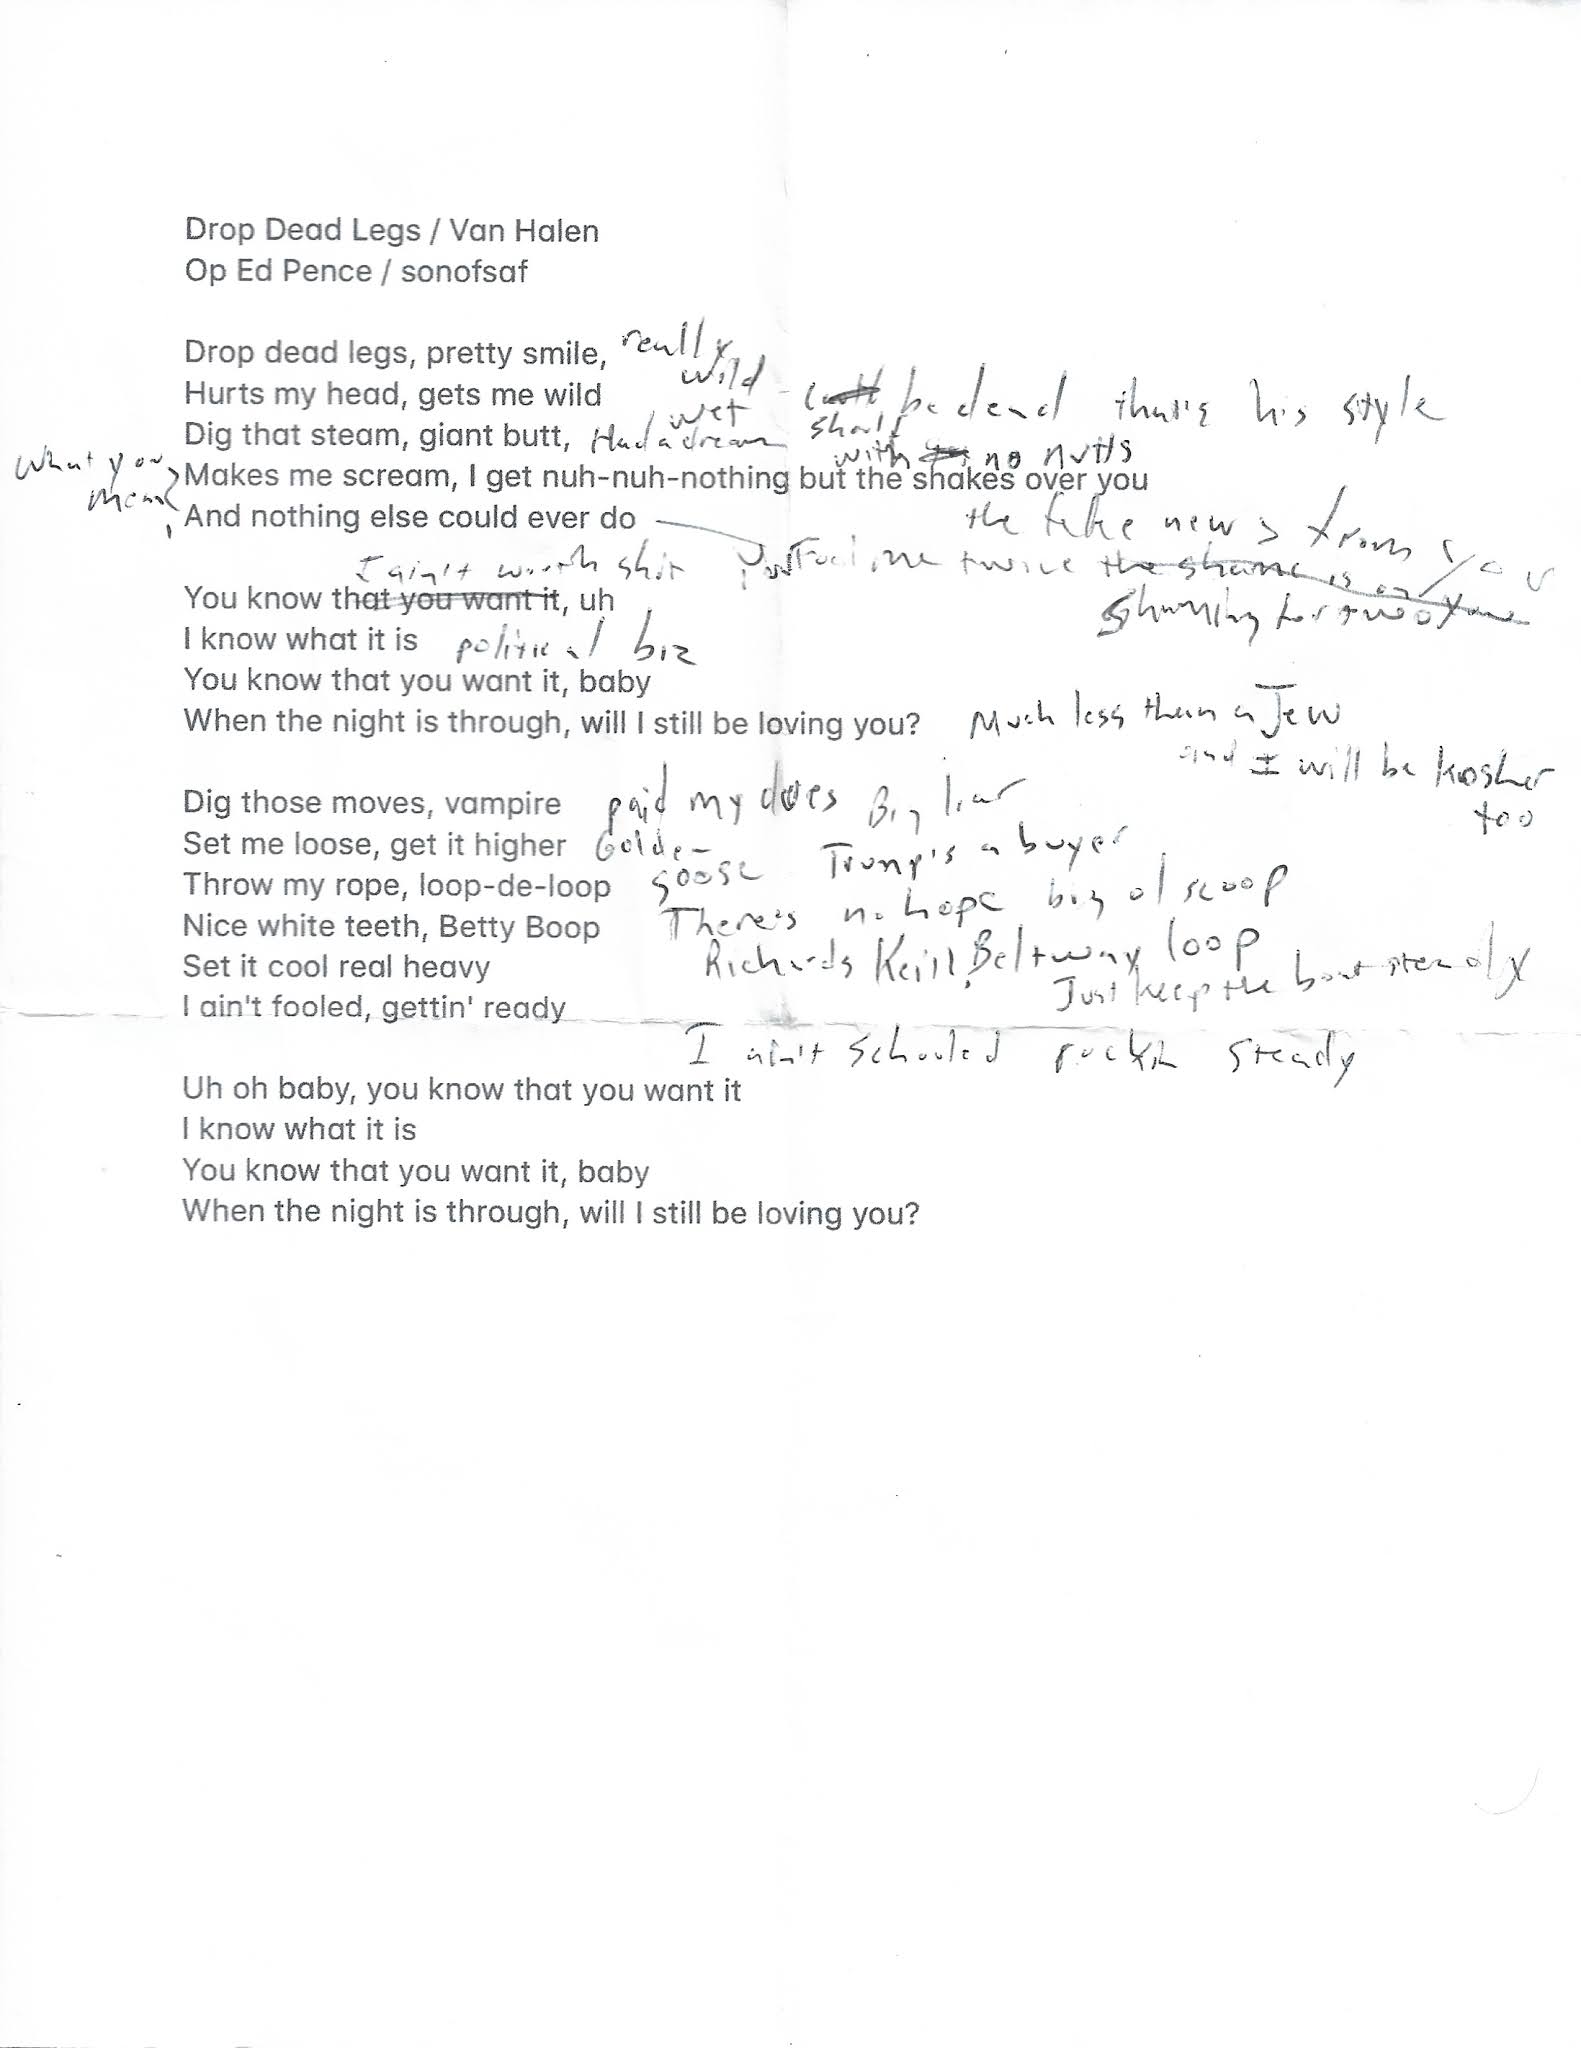 Drop Dead Legs / Van Halen
Op Ed Pence / sonofsaf
Drop dead legs, pretty smile, really wild
Hurts my head, gets me wild be dead that's his style
Dig that steam, giant butt, Had a wet dream
with no nutts
What you mean
Makes me scream, I get nuh-nuh-nothing but the shakes over you
And nothing else could ever do the fake news from you
Fool me twice the shame is on you
I ain't worth shit
You know that you want it, uh
I know what it is political biz
You know that you want it, baby
When the night is through, will I still be loving you? Much less than a Jew
and I will be kosher too
Dig those moves, vampire paid my dues Big liar
Set me loose, get it higher Golden goose Trump's a buyer
Throw my rope, loop-de-loop There's no hope big ol scoop
Nice white teeth, Betty Boop Richards Keill, Beltway loop
Set it cool real heavy Just keep the boat steady
I ain't fooled, gettin' ready I ain't schooled steady
Uh oh baby, you know that you want it
I know what it is
You know that you want it, baby
When the night is through, will I still be loving you?